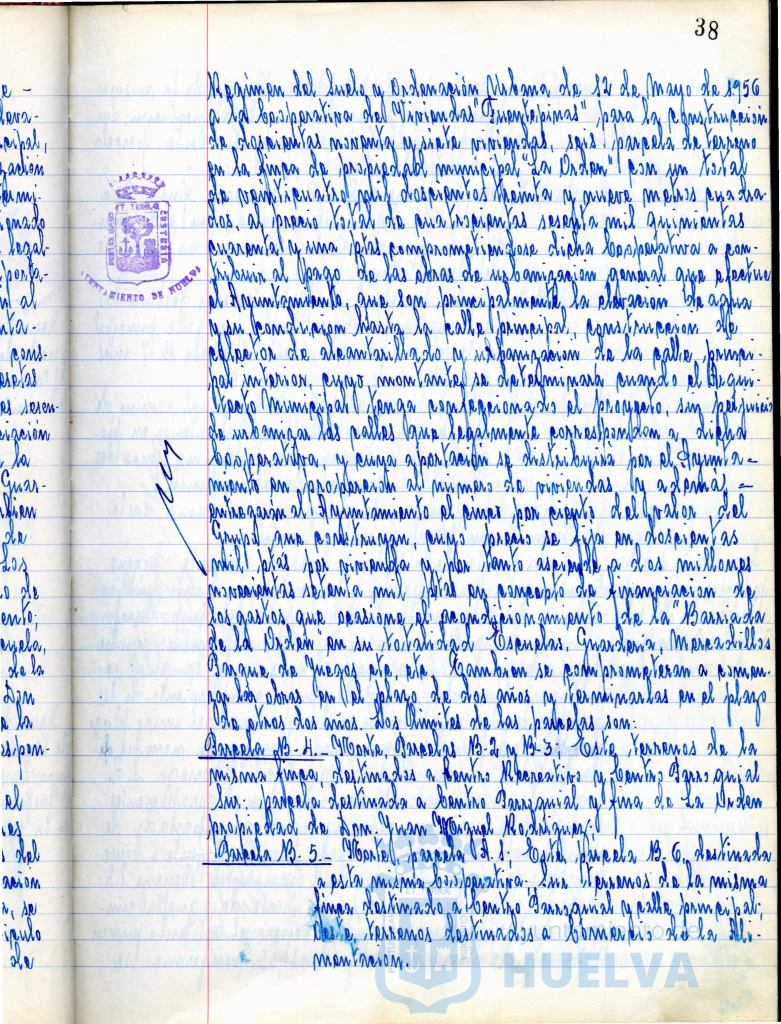 38
Regimen del Suelo y Ordenación Urbana de 12 de Mayo de 1956
a la Cooperativa de Viviendas "Fuentepinas", para la construcción
de doscientas noventa y siete viviendas, seis parcela de terreno
en la finca de propiedad municipal "La Orden" con un total
de veinticuatro mil doscientos treinta y nueve metros cuadra-
dos, al precio total de cuatrocientas sesenta mil quinientas
cuarenta y una ptas, comprometiendose dicha Cooperativa a con-
tribuir al pago de las obras de urbanización general que efectue
el Ayuntamiento, que son principalmente la elevacion de agua
y su conducion hasta la calle principal, construccion de
colector de alcantarillado y urbanizacion de la calle princi-
pal interior, cuyo montante se determinará cuando el Arqui-
tecto Municipal tenga confeccionado el proyecto, sin perjuicio
de urbanizar las calles que legalmente correspondan a dicha
Cooperativa, y cuya aportación se distribuira por el Ayunta-
miento en proporcion al numero de viviendas y ademas -
entregarán al Ayuntamiento el cinco por ciento del valor del
Grupo que construyan, cuyo precio se fija en doscientas
mil ptas por vivienda y por tanto asciende a dos millones
novecientas setenta mil ptas en concepto de financiación de
los gastos que ocasione el acondicionamiento de la "Barriada
de la Orden" en su totalidad Escuelas, Guarderia, Mercadillos
Parque de Juegos etc, etc. Tambien se comprometeran a comen-
zar las obras en el plazo de dos años y terminarlas en el plazo
de otros dos años. Los limites de las parcelas son:
Parcela B-4.- Norte, Parcelas B-2 y B-3; Este terrenos de la
misma finca destinados a Centro Recreativo y Centro Parroquial
Sur: parcela destinada a Centro Parroquial y finca de La Orden
propiedad de Don. Juan Miguel Rodriguez.
Parcela B-5.- Norte, parcela A.S; Este, parcela B-6, destinada
a esta misma Cooperativa; Sur terrenos de la misma
finca destinado a Centro Parroquial y calle principal;
terrenos destinados a Comercio de la Ali-
mentación.
AYUNTAMIENTO DE HUELVA
Ayuntamiento de
HUELVA